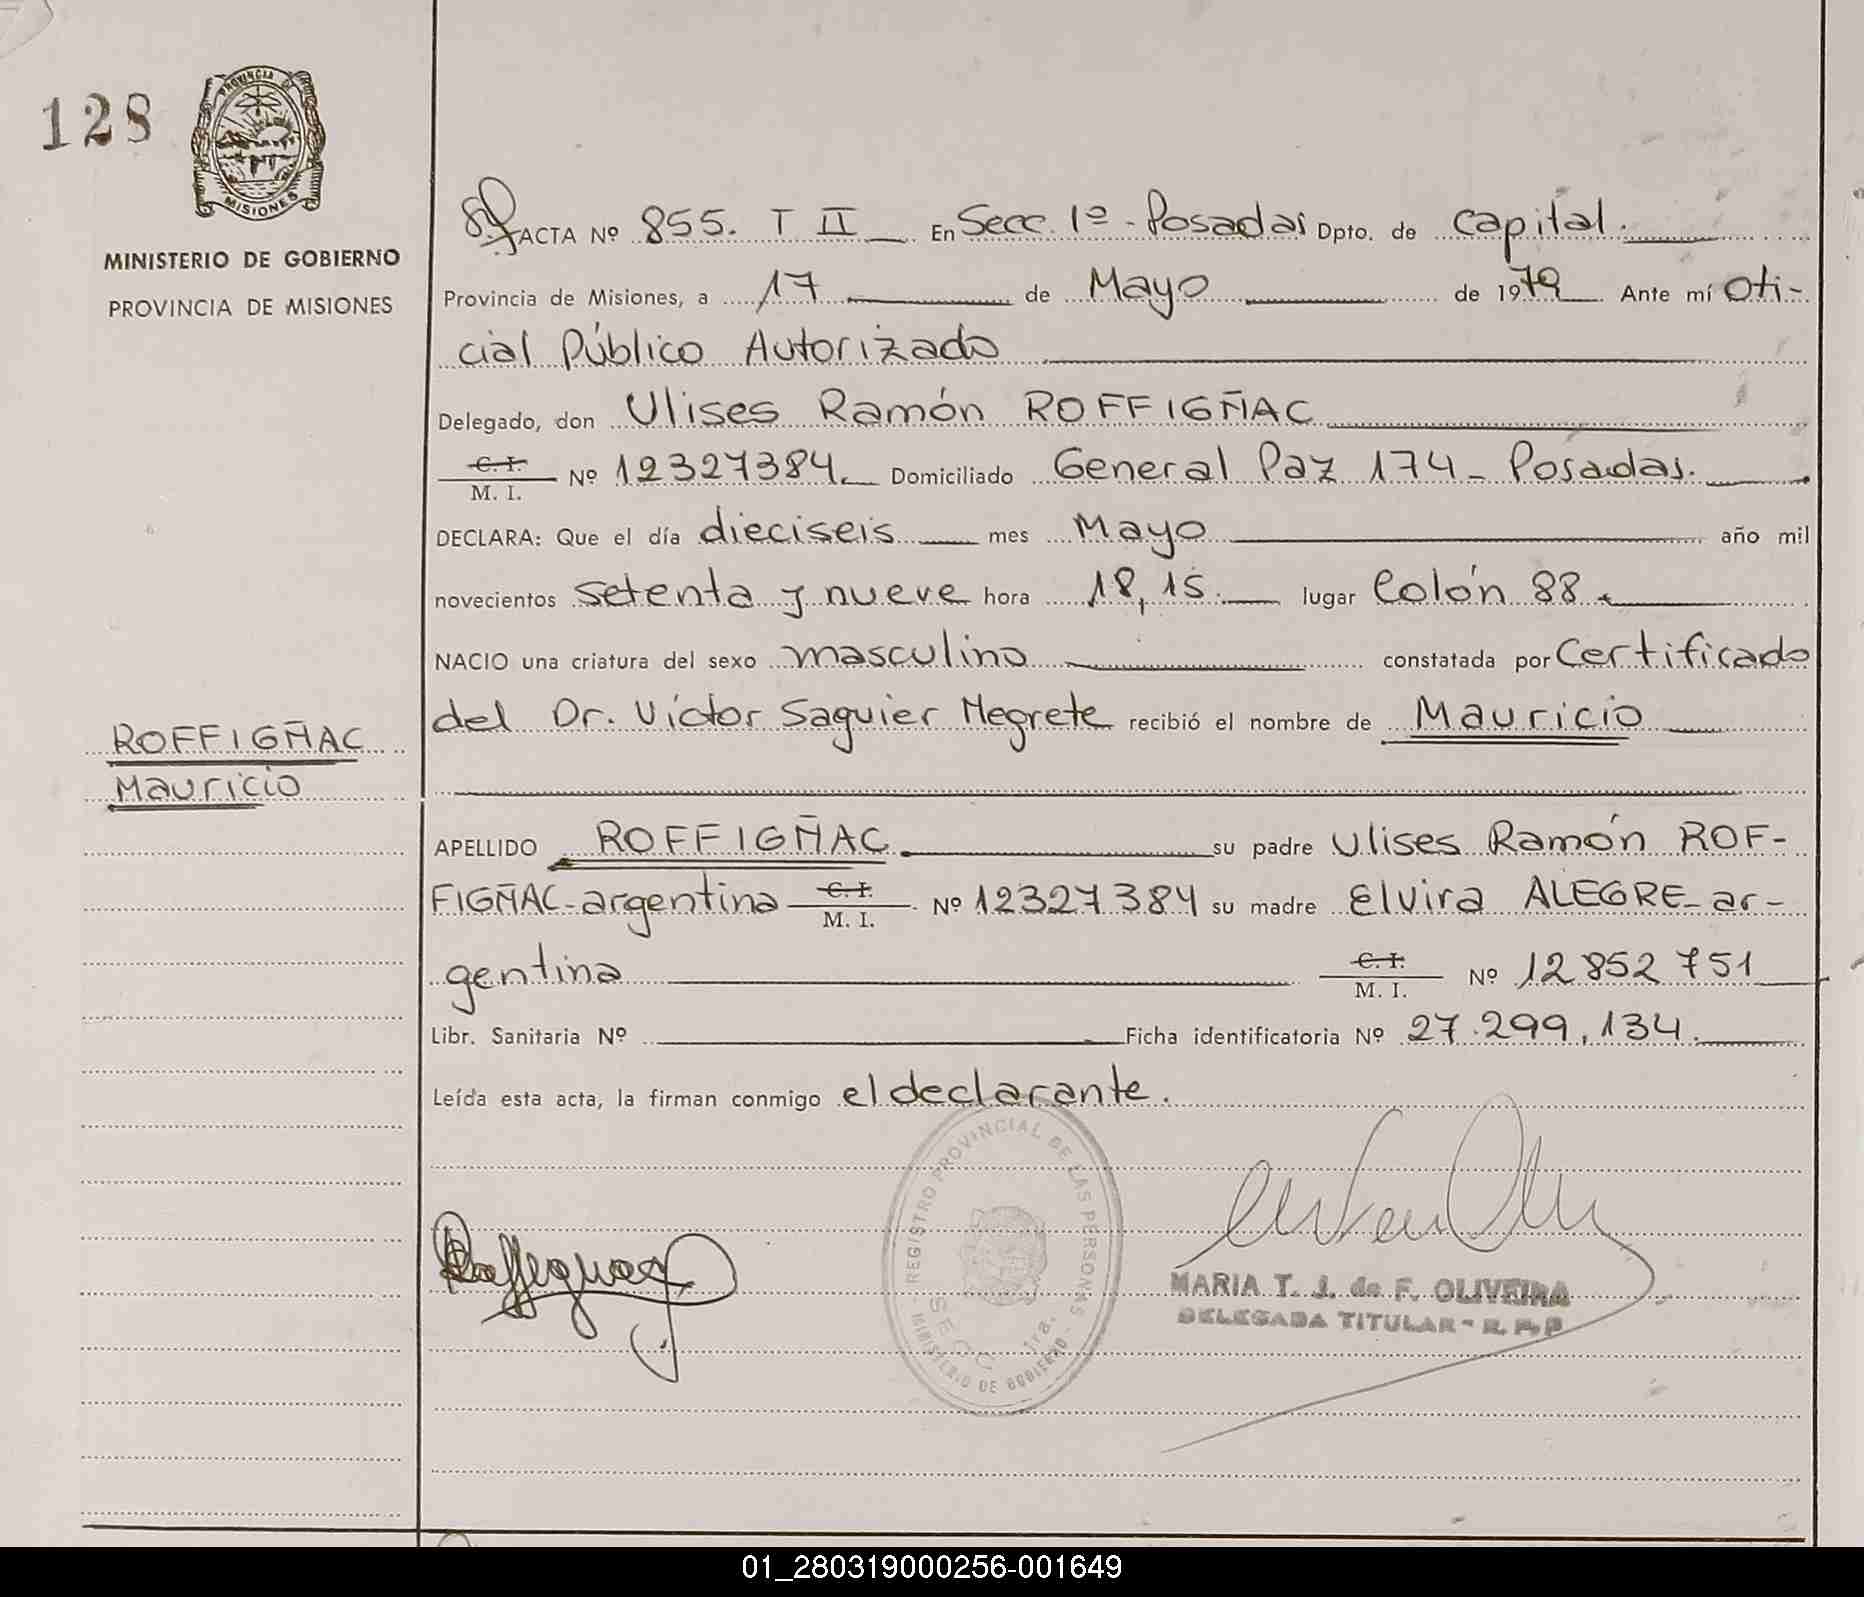 128
PROVINCIA DE
MISIONES
MINISTERIO DE GOBIERNO
PROVINCIA DE MISIONES
ROFFIGÑAC
Mauricio
ACTA Nº 855. T II En Secc. 1º - Posadas Dpto. de Capital.
Provincia de Misiones, a 17 de Mayo de 1979 Ante mí Ofi-
cial Público Autorizado
Delegado, don Ulises Ramón ROFFIGÑAC
C. I.
M. I. Nº 12327384 Domiciliado General Paz 174 - Posadas.
DECLARA: Que el día dieciseis mes Mayo año mil
novecientos setenta y nueve hora 18,15. lugar Colón 88.
NACIO una criatura del sexo masculino constatada por Certificado
del Dr. Víctor Saguier Negrete recibió el nombre de Mauricio
APELLIDO ROFFIGÑAC su padre Ulises Ramón ROF-
FIGÑAC - argentina C. I.
M. I. Nº 12327384 su madre Elvira ALEGRE - ar-
gentina C. I.
M. I. Nº 12852751
Libr. Sanitaria Nº Ficha identificatoria Nº 27.299.134.
Leída esta acta, la firman conmigo el declarante.
REGISTRO PROVINCIAL DE LAS PERSONAS
SECC 1ra.
MINISTERIO DE GOBIERNO
MARIA T. J. de F. OLIVEIRA
DELEGADA TITULAR - R. P. P
01_280319000256-001649